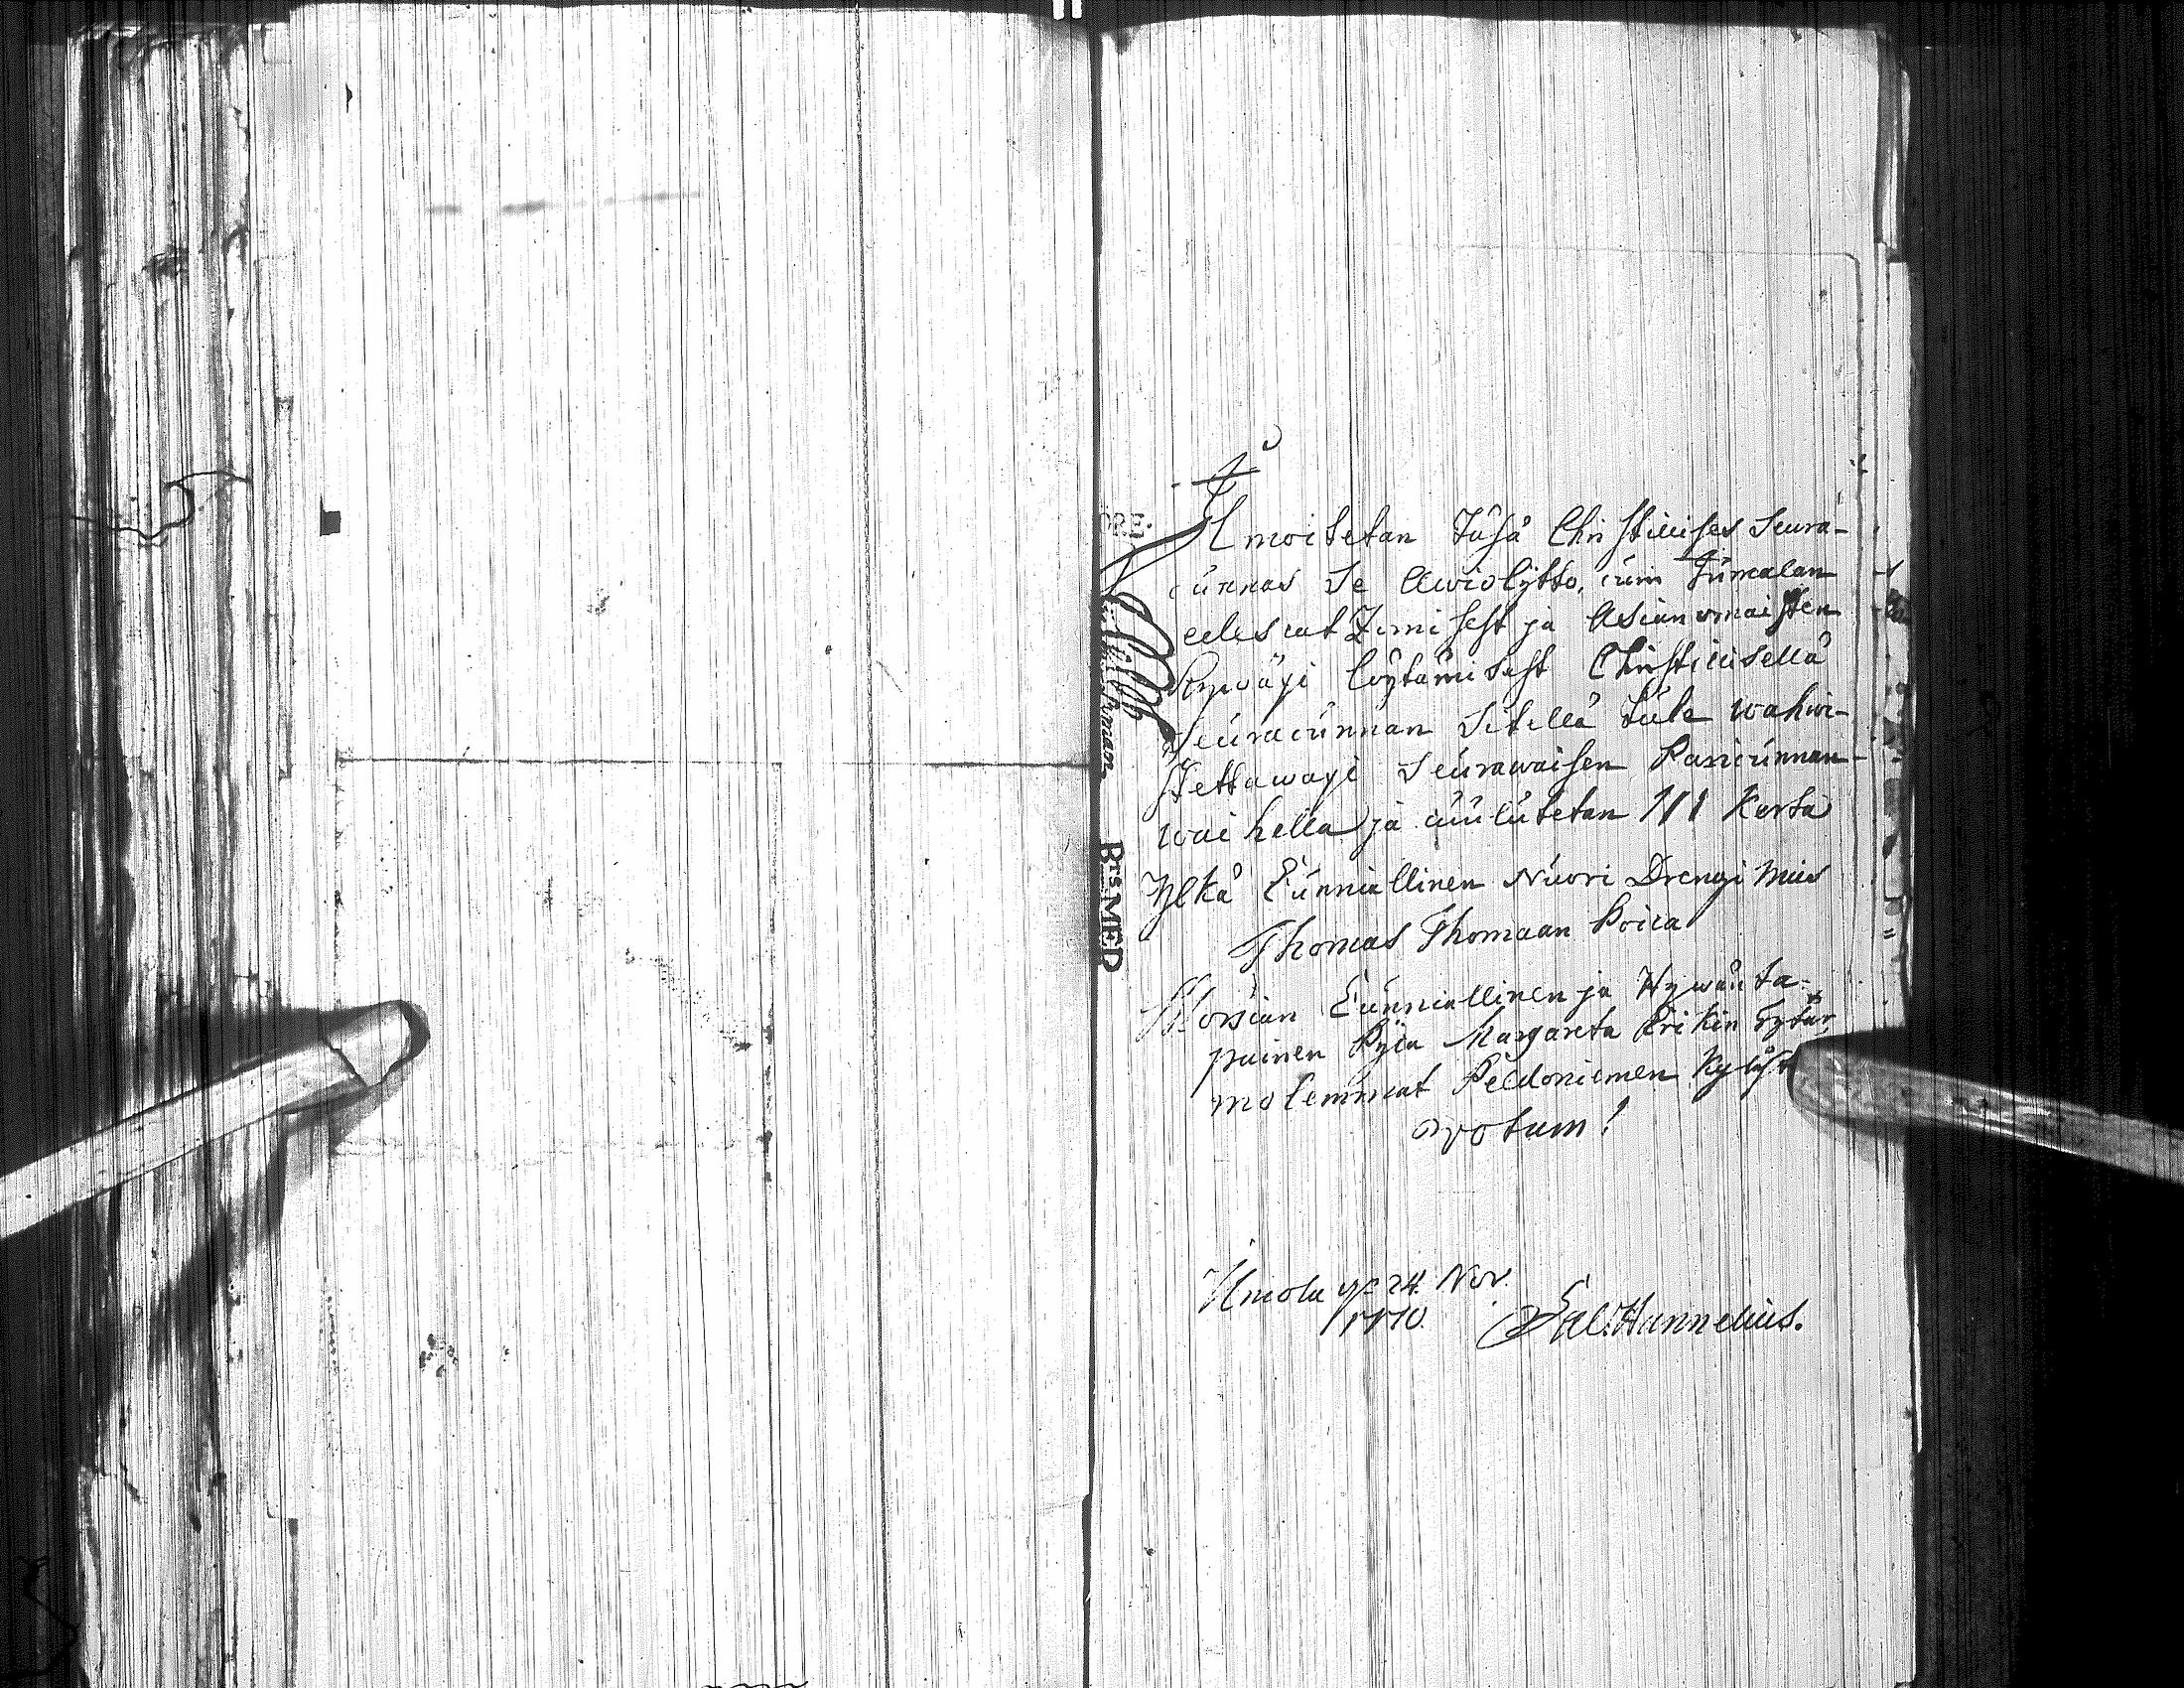 Ilmoitetan Täsä Christilises Seura-
cunnas Se Awiolijtto, cuin Jumalan
edescatZomisest ja Asianomaisten
hywäxi löytämisest Christilisellä
Seuracunnan Sitellä tule wahwi-
stettawaxi Seurawaisen Pariscunnan
waihella ja cuulutetan III Kerta
Ylkä Cunniallinen Nuori Drengi Mies
Thomas Thomaan Poica
Morsian Cunniallinen ja Hywänta-
painen Pijca Margareta Erikin Tytär,
molemmat Peldoniemen Kyläst
votum!
Ilmola 24. Nov.
1770.
Sal. Hannelius.
Brs MED